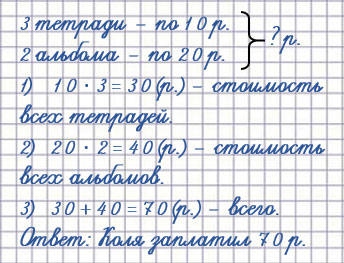 3 тетради – по 10 р.
2 альбома – по 20 р.
? р.
1) 10 · 3 = 30 (р.) – стоимость
всех тетрадей.
2) 20 · 2 = 40 (р.) – стоимость
всех альбомов.
3) 30 + 40 = 70 (р.) – всего.
Ответ: Коля заплатил 70 р.